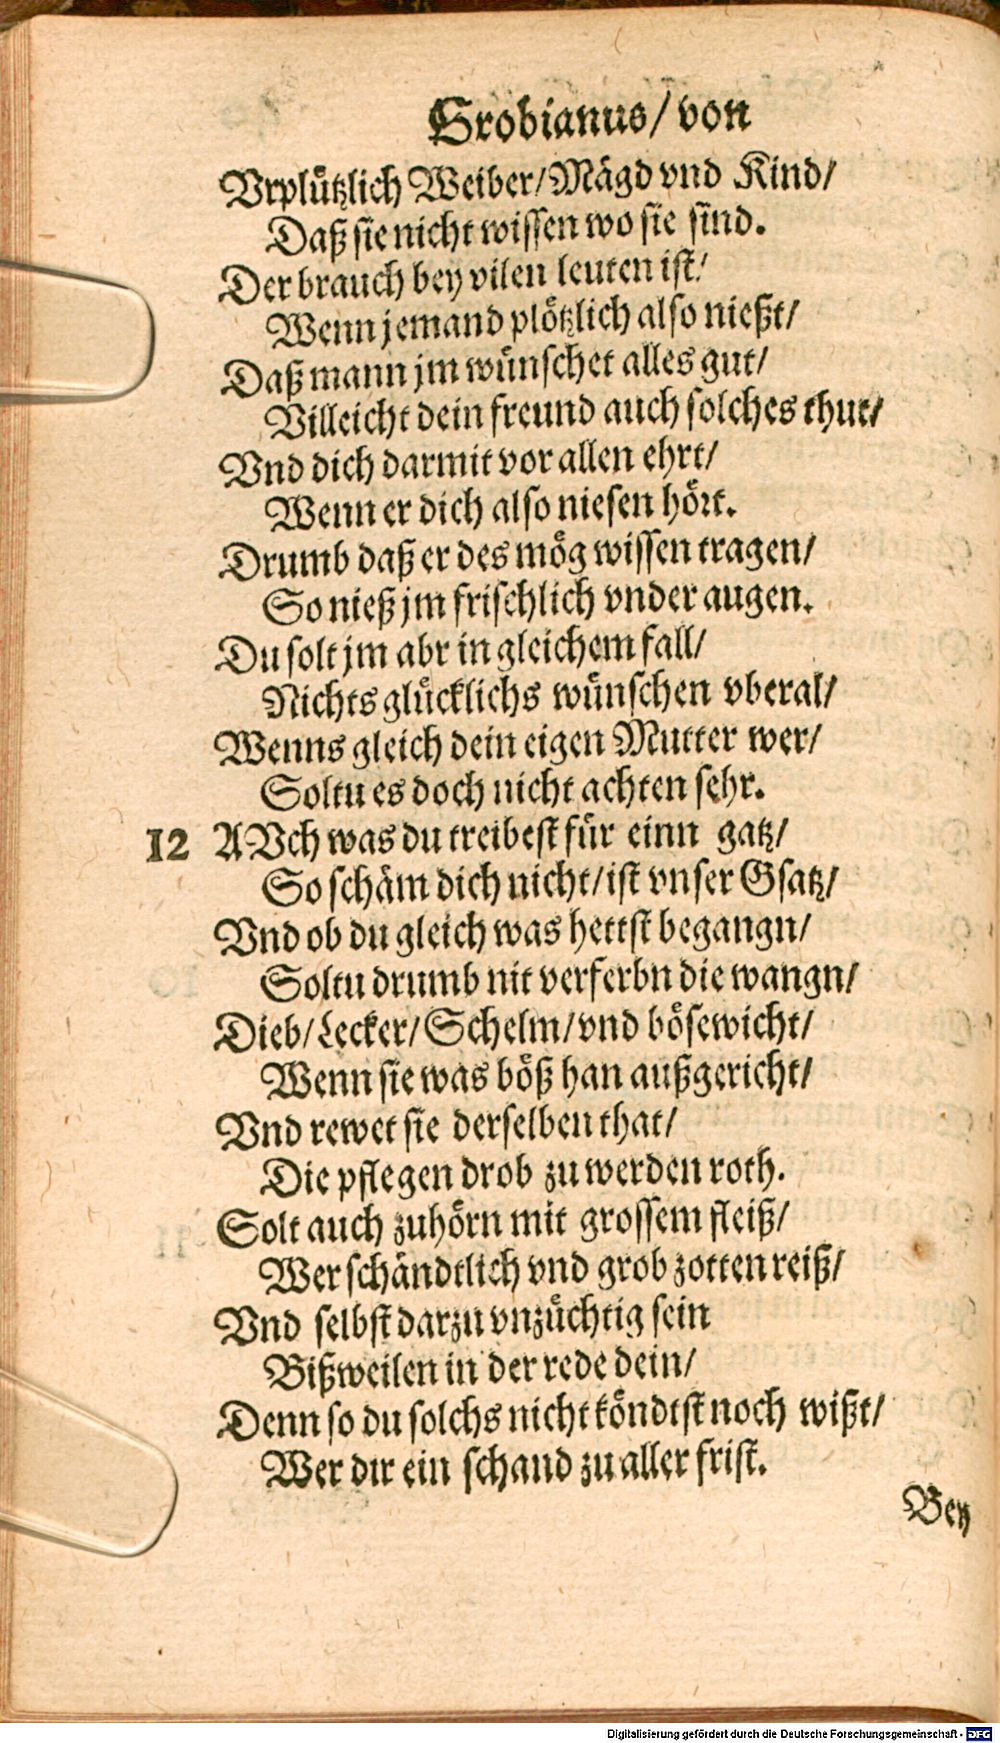 Grobianus/ von
Vrplützlich Weiber/ Mägd vnd Kind/
Daß sie nicht wissen wo sie sind.
Der brauch bey vilen leuten ist/
Wenn jemand plötzlich also nießt/
Daß mann jm wünschet alles gut/
Villeicht dein freund auch solches thut/
Vnd dich darmit vor allen ehrt/
Wenn er dich also niesen hört.
Drumb daß er des mög wissen tragen/
So nieß jm frischlich vnder augen.
Du solt jm abr in gleichem fall/
Nichts glücklichs wünschen vberal/
Wenns gleich dein eigen Mutter wer/
Soltu es doch nicht achten sehr.
12 AVch was du treibest für einn gatz/
So schäm dich nicht/ ist vnser Gsatz/
Vnd ob du gleich was hettst begangn/
Soltu drumb nit verferbn die wangn/
Dieb/ Lecker/ Schelm/ vnd bösewicht/
Wenn sie was böß han außgericht/
Vnd rewet sie derselben that/
Die pflegen drob zu werden roth.
Solt auch zuhörn mit grossem fleiß/
Wer schändtlich vnd grob zotten reiß/
Vnd selbst darzu vnzüchtig sein
Bißweilen in der rede dein/
Denn so du solchs nicht köndtst noch wißt/
Wer dir ein schand zu aller frist.
Bey
Digitalisierung gefördert durch die Deutsche Forschungsgemeinschaft - DFG